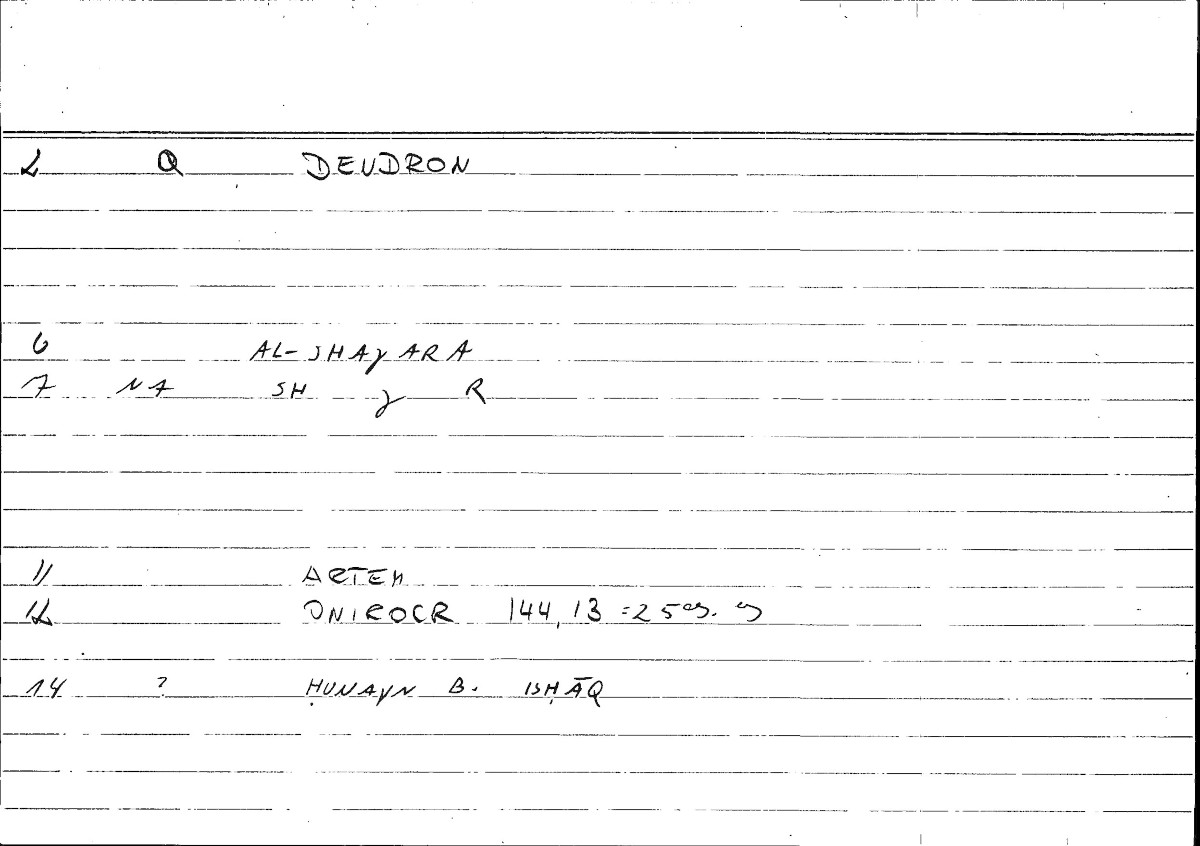 2 Q DEUDRON
6 AL-SHAɣARA
7 NA SH ɣ R
11 ARTEM
12 ONIROCR 144,13 = 25
14 ? ḤUNAYN B. ISḤĀQ